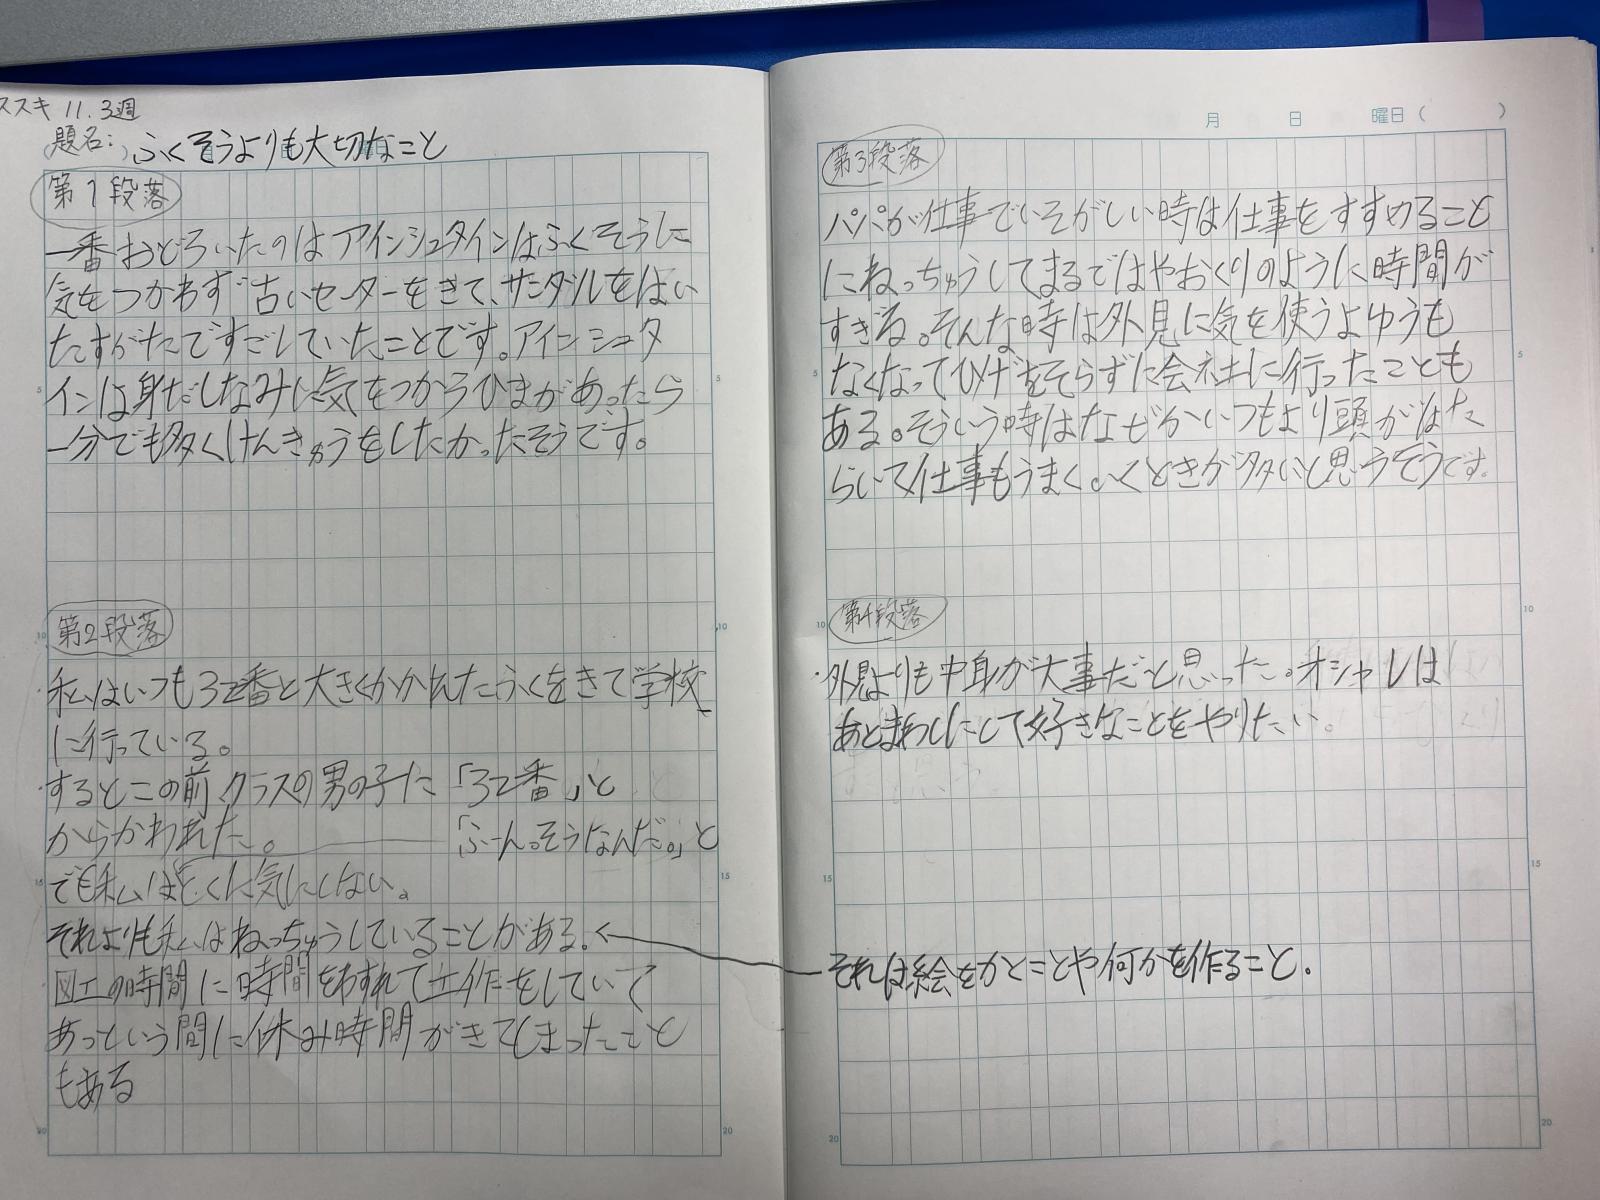 ススキ 11.3週
題名:ふくそうよりも大切なこと
第1段落
一番おどろいたのはアインシュタインはふくそうに
気をつかわず古いセーターをきて、サンダルをはい
たすがたですごしていたことです。アインシュタ
インは身だしなみに気をつかうひまがあったら
一分でも多くけんきゅうをしたかったそうです。
第2段落
・私はいつも32番と大きくかかれたふくをきて学校
に行っている。
・するとこの前クラスの男の子に「32番」と
からかわれた。
「ふーん。そうなんだ。」と
でも私はとくに気にしない。
それよりも私はねっちゅうしていることがある。
図工の時間に時間をわすれて工作をしていて
あっという間に休み時間がきてしまったこと
もある
月 日 曜日( )
第3段落
パパが仕事でいそがしい時は仕事をすすめること
にねっちゅうしてまるではやおくりのように時間が
すぎる。そんな時は外見に気を使うよゆうも
なくなってひげをそらずに会社に行ったことも
ある。そういう時はなぜかいつもより頭がはた
らいて仕事もうまくいくときが多いと思うそうです。
第4段落
・外見よりも中身が大事だと思った。オシャレは
あとまわしにして好きなことをやりたい。
それは絵をかくことや何かを作ること。